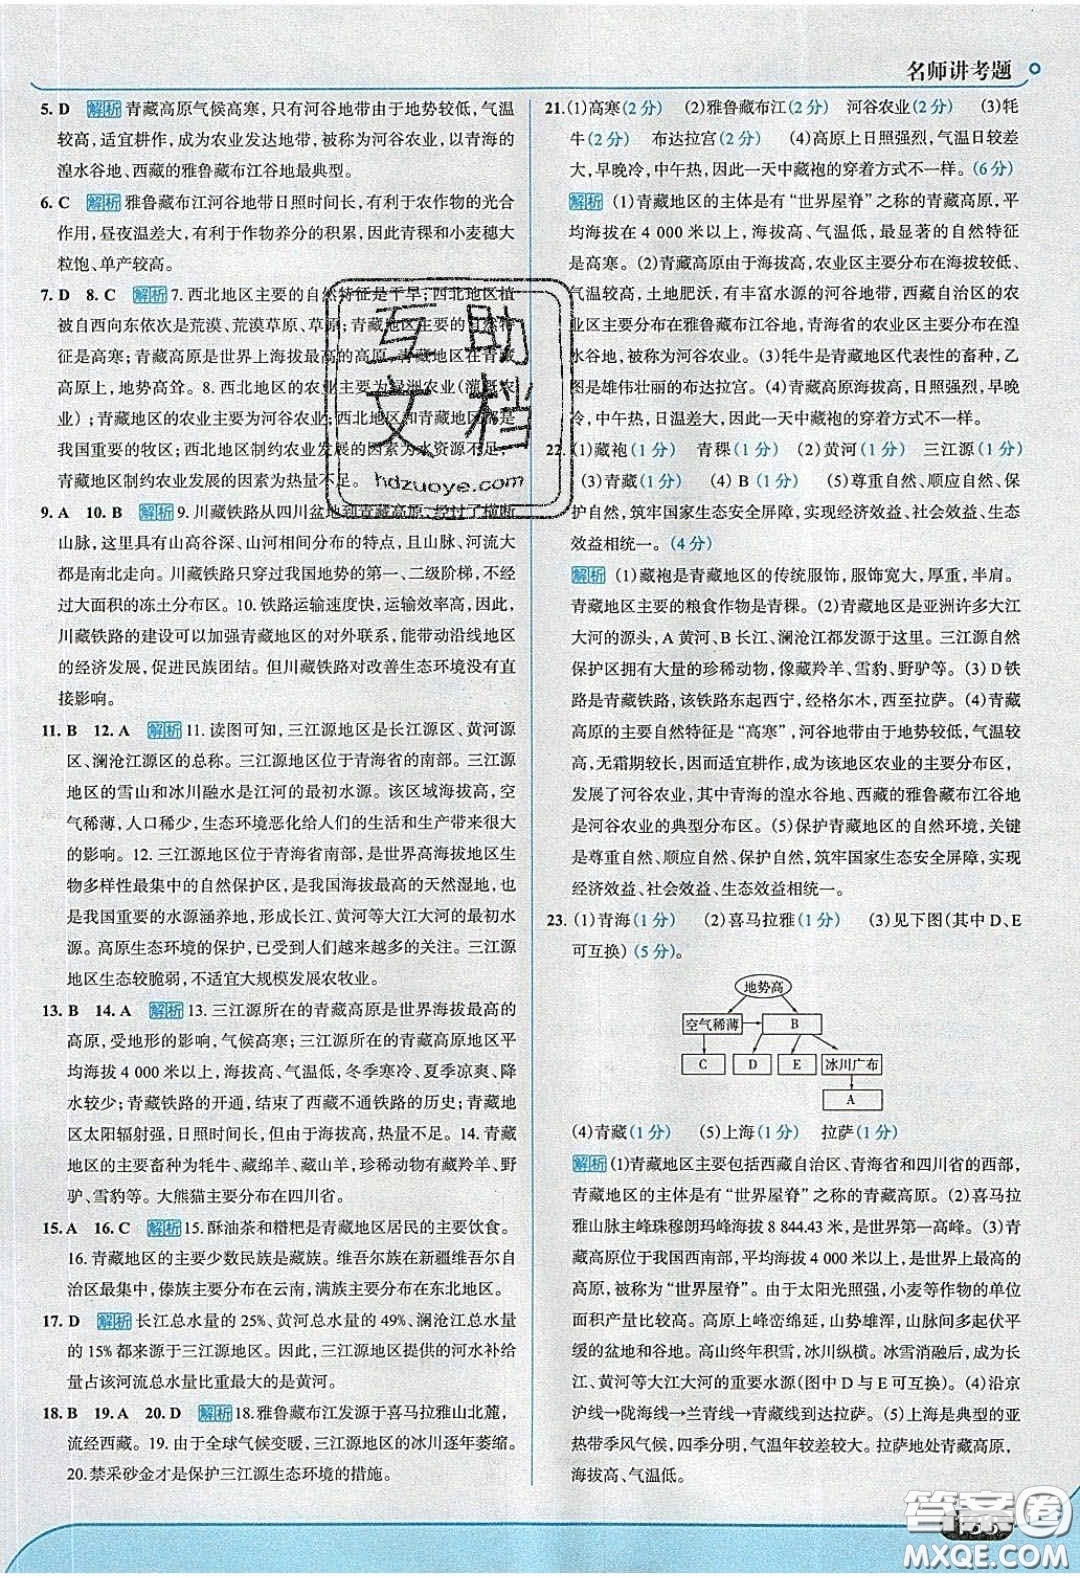 名师讲考题
5. D 解析 青藏高原气候高寒,只有河谷地带由于地势较低,气温
较高,适宜耕作,成为农业发达地带,被称为河谷农业,以青海的
湟水谷地、西藏的雅鲁藏布江谷地最典型。
6. C 解析 雅鲁藏布江河谷地带日照时间长,有利于农作物的光合
作用,昼夜温差大,有利于作物养分的积累,因此青稞和小麦穗大
粒饱、单产较高。
7. D 8. C 解析 7. 西北地区主要的自然特征是干旱;西北地区植
被自西向东依次是荒漠、荒漠草原、草原;青藏地区主要的自然特
征是高寒;青藏高原是世界上海拔最高的高原,青藏地区在青藏
高原上,地势高耸。8. 西北地区的农业主要为绿洲农业(灌溉农
业);青藏地区的农业主要为河谷农业;西北地区和青藏地区都是
我国重要的牧区;西北地区制约农业发展的因素为水资源不足,
青藏地区制约农业发展的因素为热量不足。
9. A 10. B 解析 9. 川藏铁路从四川盆地到青藏高原,经过了横断
山脉,这里具有山高谷深、山河相间分布的特点,且山脉、河流大
都是南北走向。川藏铁路只穿过我国地势的第一、二级阶梯,不经
过大面积的冻土分布区。10. 铁路运输速度快,运输效率高,因此,
川藏铁路的建设可以加强青藏地区的对外联系,能带动沿线地区
的经济发展,促进民族团结。但川藏铁路对改善生态环境没有直
接影响。
11. B 12. A 解析 11. 读图可知,三江源地区是长江源区、黄河源
区、澜沧江源区的总称。三江源地区位于青海省的南部。三江源
地区的雪山和冰川融水是江河的最初水源。该区域海拔高,空
气稀薄,人口稀少,生态环境恶化给人们的生活和生产带来很大
的影响。12. 三江源地区位于青海省南部,是世界高海拔地区生
物多样性最集中的自然保护区,是我国海拔最高的天然湿地,也
是我国重要的水源涵养地,形成长江、黄河等大江大河的最初水
源。高原生态环境的保护,已受到人们越来越多的关注。三江源
地区生态较脆弱,不适宜大规模发展农牧业。
13. B 14. A 解析 13. 三江源所在的青藏高原是世界海拔最高的
高原,受地形的影响,气候高寒;三江源所在的青藏高原地区平
均海拔 4 000 米以上,海拔高、气温低,冬季寒冷、夏季凉爽、降
水较少;青藏铁路的开通,结束了西藏不通铁路的历史;青藏地
区太阳辐射强,日照时间长,但由于海拔高,热量不足。14. 青藏
地区的主要畜种为牦牛、藏绵羊、藏山羊,珍稀动物为藏羚羊、野
驴、雪豹等。大熊猫主要分布在四川省。
15. A 16. C 解析 15. 酥油茶和糌粑是青藏地区居民的主要饮食。
16. 青藏地区的主要少数民族是藏族。维吾尔族在新疆维吾尔自
治区最集中,傣族主要分布在云南,满族主要分布在东北地区。
17. D 解析 长江总水量的 25%、黄河总水量的 49%、澜沧江总水量
的 15%都来源于三江源地区。因此,三江源地区提供的河水补给
量占该河流总水量比重最大的是黄河。
18. B 19. A 20. D 解析 18. 雅鲁藏布江发源于喜马拉雅山北麓,
流经西藏。19. 由于全球气候变暖,三江源地区的冰川逐年萎缩。
20. 禁采砂金才是保护三江源生态环境的措施。
21. (1)高寒(2 分) (2)雅鲁藏布江(2 分) 河谷农业(2 分) (3)牦
牛(2 分) 布达拉宫(2 分) (4)高原上日照强烈,气温日较差
大,早晚冷,中午热,因此一天中藏袍的穿着方式不一样。(6 分)
解析 (1)青藏地区的主体是有“世界屋脊”之称的青藏高原,
平均海拔在 4 000 米以上,海拔高、气温低,最显著的自然特征
是高寒。(2)青藏高原由于海拔高,农业区主要分布在海拔较低、
气温较高,土地肥沃,有丰富水源的河谷地带,西藏自治区的农
业区主要分布在雅鲁藏布江谷地,青海省的农业区主要分布在湟
水谷地,被称为河谷农业。(3)牦牛是青藏地区代表性的畜种,乙
图是雄伟壮丽的布达拉宫。(4)青藏高原海拔高,日照强烈,早晚
冷,中午热,日温差大,因此一天中藏袍的穿着方式不一样。
22. (1)藏袍(1 分) 青稞(1 分) (2)黄河(1 分) 三江源(1 分)
(3)青藏(1 分) (4) B(1 分) (5)尊重自然、顺应自然、保
护自然,筑牢国家生态安全屏障,实现经济效益、社会效益、生态
效益相统一。(4 分)
解析 (1)藏袍是青藏地区的传统服饰,服饰宽大,厚重,半肩。
青藏地区主要的粮食作物是青稞。(2)青藏地区是亚洲许多大江
大河的源头,A 黄河、B 长江、澜沧江都发源于这里。三江源自然
保护区拥有大量的珍稀动物,像藏羚羊、雪豹、野驴等。(3) D 铁
路是青藏铁路,该铁路东起西宁,经格尔木,西至拉萨。(4)青藏
高原的主要自然特征是“高寒”,河谷地带由于地势较低,气温较
高、无霜期较长,因而适宜耕作,成为该地区农业的主要分布区,
发展了河谷农业,其中青海的湟水谷地、西藏的雅鲁藏布江谷地
是河谷农业的典型分布区。(5)保护青藏地区的自然环境,关键
是尊重自然、顺应自然、保护自然,筑牢国家生态安全屏障,实现
经济效益、社会效益、生态效益相统一。
23. (1)青海(1 分) (2)喜马拉雅(1 分) (3)见下图(其中 D、E
可互换)(5 分)。
地势高
空气稀薄 B
C D E 冰川广布
A
(4)青藏(1 分) (5)上海(1 分) 拉萨(1 分)
解析 (1)青藏地区主要包括西藏自治区、青海省和四川省的西部,
青藏地区的主体是有“世界屋脊”之称的青藏高原。(2)喜马拉
雅山脉主峰珠穆朗玛峰海拔 8 844.43 米,是世界第一高峰。(3)青
藏高原位于我国西南部,平均海拔 4 000 米以上,是世界上最高的
高原,被称为“世界屋脊”。由于太阳光照强,小麦等作物的单位
面积产量较高。高原上峰峦绵延,山势雄浑,山脉间多起伏平
缓的盆地和谷地。高山终年积雪,冰川纵横。冰雪消融后,成为
我国大江大河的重要水源(图中 D 与 E 可互换)。(4)沿京
沪线→陇海线→兰青线→青藏线可到达拉萨。(5)上海是典型的亚
热带季风气候,四季分明,气温年较差较大。拉萨地处青藏高原,
海拔高、气温低。
互助
文档
hdzuoye.com
答案圈
MXQE.COM